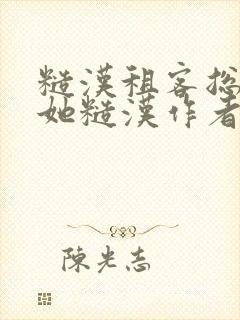 糙漢租客총
她糙漢作者
陳光志